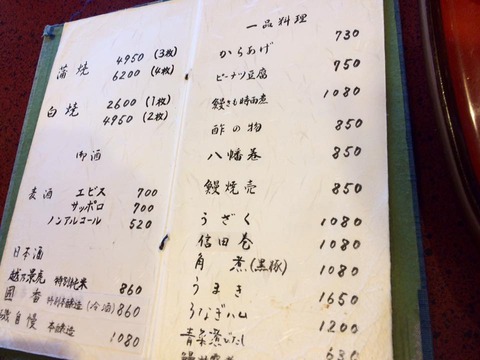 蒲焼 4950 (3枚)
6200 (4枚)
白焼 2600 (1枚)
4950 (2枚)
御酒
麦酒 エビス 700
サッポロ 700
ノンアルコール 520
日本酒
越乃景虎 特別純米 860
一番 特別本醸造 (冷酒) 860
磯自慢 本醸造 1080
一品料理
からあげ 730
ピーナツ豆腐 750
鰻きも時雨煮 1080
酢の物 850
八幡巻 850
鰻焼売 850
うざく 1080
信田巻 1080
角煮(黒豚) 1080
うまき 1650
うなぎハム 1200
青菜煮びたし 630